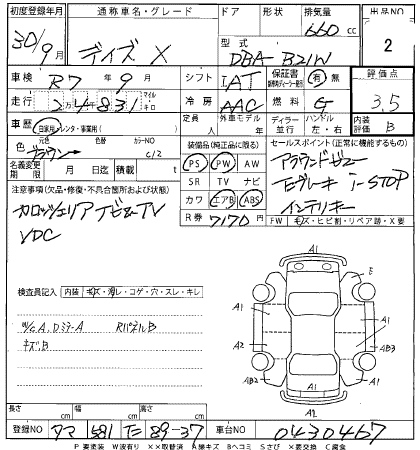 初度登録年月 通称車名・グレード ドア 形状 排気量 出品NO
30/9月 デイズ X 660 cc 2
型式 DBA-B21W
車検 R7年9月 シフト IAT 保証書 有 無 評価点
走行 24831 マイル キロ 冷房 AAC 燃料 G 3.5
車歴 自家用・レンタ・事業用( ) 定員 人 外車モデル ディーラー 並行 ハンドル 左・右 内装評価 B
色 元色 色替 カラーNO
ブラウン c/2
装備品(純正品に限る) セールスポイント(正常に機能するもの)
PS PW AW アラウンドビュー
名義変更期限 月 日迄 積載 t SR TV ナビ Eブレーキ i-STOP
注意事項(欠品・修復・不具合箇所および状態) カワ エアB ABS インテリキー
カロッツェリア TビューTV R券 7170円 FW キズ・ヒビ割・リペア跡・X要
VDC
検査員記入 内装 キズ・汚レ・コゲ・穴・スレ・キレ
A, DミラーA RパネルB
キズB
A1 E A1 A1 A2 AB3 AB2 A1 A2
長さ cm 幅 cm 高さ cm
登録NO タマ 581 た 89-37 車台NO 0430467
P 要塗装 W波有り XX取替済 A線キズ Bヘコミ Sさび X要交換 C腐食